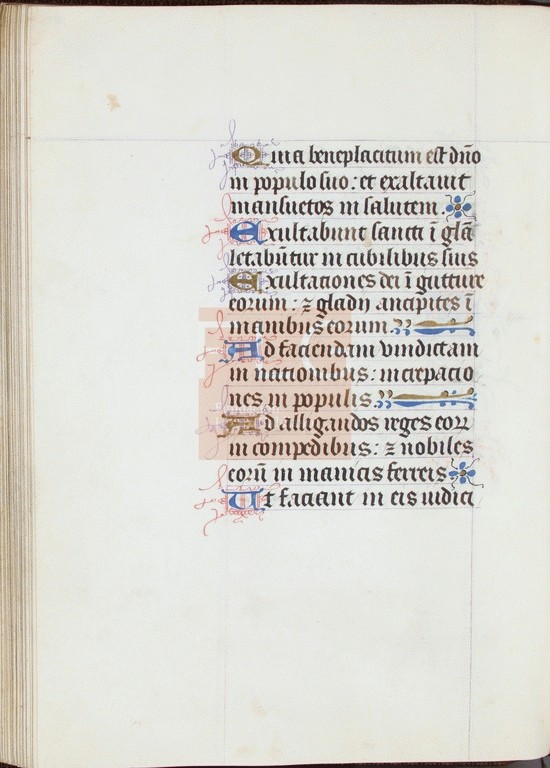 Quia beneplacitum est dño
in populo suo: et exaltauit
mansuetos in salutem
Exultabunt sancti ī glã
letabūtur in cubilibus suis
Exultationes dei ī gutture
eorum: ⁊ gladij ancipites ī
manibus eorum.
Ad faciendam vindictam
in nationibus: increpacio
nes in populis
Ad alligandos reges eoꝝ
in compedibus: ⁊ nobiles
eorū in manicis ferreis
Ut faciant in eis iudici